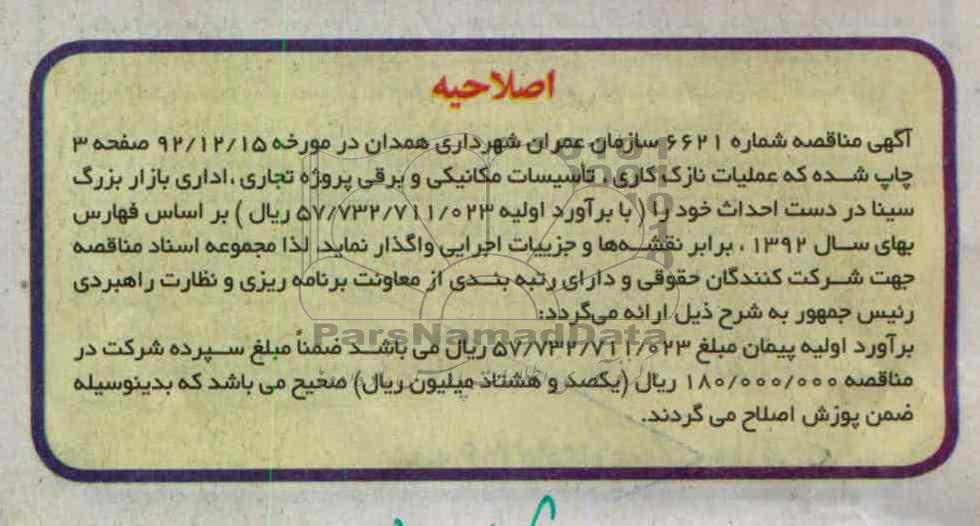 اصلاحیه
آگهی مناقصه شماره ۶۶۲۱ سازمان عمران شهرداری همدان در مورخه ۹۲/۱۲/۱۵ صفحه ۳
چاپ شده که عملیات نازک کاری، تأسیسات مکانیکی و برقی پروژه تجاری، اداری بازار بزرگ
سینا در دست احداث خود را ( با برآورد اولیه ۵۷/۷۳۲/۷۱۱/۰۲۳ ریال ) بر اساس فهارس
بهای سال ۱۳۹۲ ، برابر نقشه‌ها و جزییات اجرایی واگذار نماید. لذا مجموعه اسناد مناقصه
جهت شرکت کنندگان حقوقی و دارای رتبه بندی از معاونت برنامه ریزی و نظارت راهبردی
رئیس جمهور به شرح ذیل ارائه می‌گردد:
ParsNamadData
برآورد اولیه پیمان مبلغ ۵۷/۷۳۲/۷۱۱/۰۲۳ ریال می باشد ضمناً مبلغ سپرده شرکت در
مناقصه ۱۸۰/۰۰۰/۰۰۰ ریال (یکصد و هشتاد میلیون ریال) صحیح می باشد که بدینوسیله
ضمن پوزش اصلاح می گردند.